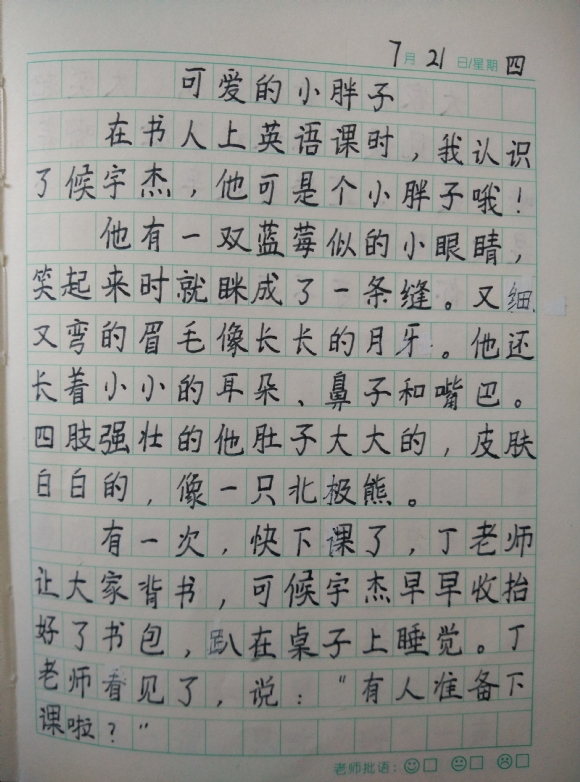 7月21日/星期四
可爱的小胖子
在书人上英语课时，我认识
了候宇杰，他可是个小胖子哦！
他有一双蓝莓似的小眼睛，
笑起来时就眯成了一条缝。又细
又弯的眉毛像长长的月牙。他还
长着小小的耳朵、鼻子和嘴巴。
四肢强壮的他肚子大大的，皮肤
白白的，像一只北极熊。
有一次，快下课了，丁老师
让大家背书，可候宇杰早早收拾
好了书包，趴在桌子上睡觉。丁
老师看见了，说：“有人准备下
课啦？”
老师批语：